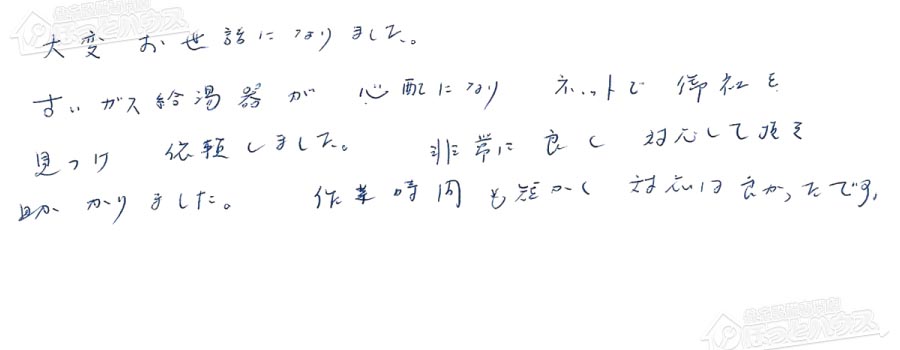 大変お世話になりました。
ガス給湯器が心配になりネットで御社を
見つけ依頼しました。非常に良く対応して頂き
助かりました。作業時間も短かく対応は良かったです。
ほっとハウス
ほっとハウス